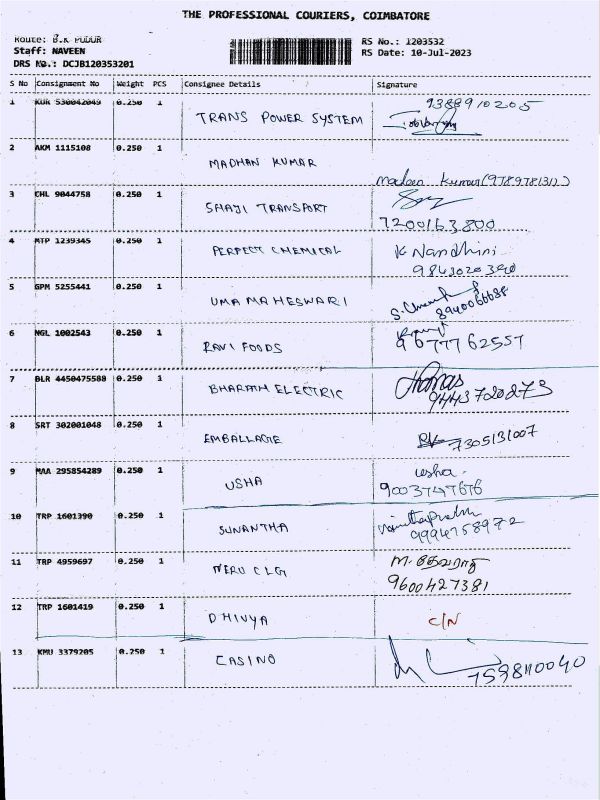 THE PROFESSIONAL COURIERS, COIMBATORE
Route: B.K PUDUR
Staff: NAVEEN
DRS No.: DCJB120353201
RS No.: 1203532
RS Date: 10-Jul-2023
S No Consignment No Weight PCS Consignee Details Signature
1 KUR 530042049 0.250 1 TRANS POWER SYSTEM 9388910205
2 AKM 1115108 0.250 1 MADHAN KUMAR
Madan Kumar (9789781311)
3 CHL 9044758 0.250 1 SHAJI TRANSPORT
7200163800
4 MTP 1239345 0.250 1 PERFECT CHEMICAL K Nandhini
9843020390
5 GPM 5255441 0.250 1 UMA MAHESWARI
8940066688
6 NGL 1002543 0.250 1 RAVI FOODS
9677762557
7 BLR 4450475588 0.250 1 BHARATH ELECTRIC Thomas
9443720273
8 SRT 302001048 0.250 1 EMBALLAGE 7305131007
9 MAA 295854289 0.250 1 USHA usha.
9003747676
10 TRP 1601390 0.250 1 SUNANTHA
9994758972
11 TRP 4959697 0.250 1 NERU CLG M.தேவராஜ்
9600427381
12 TRP 1601419 0.250 1 DHIVYA C/N
13 KMU 3379205 0.250 1 CASINO
7598110040